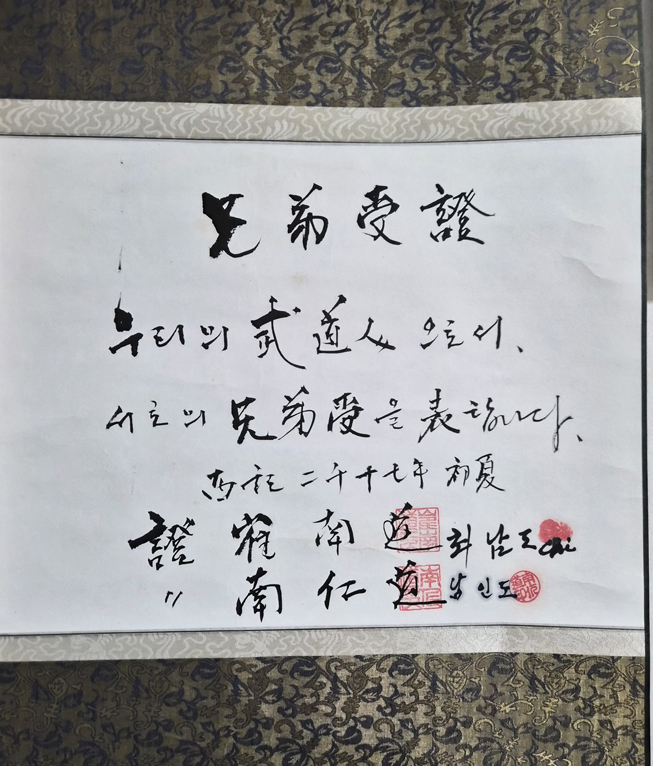 兄弟愛證
우리의 武道人 으로서、
서로의 兄弟愛을 表합니다、
西紀 二千十七年 初夏
證 崔南道 최남도
〃 南仁道 남인도